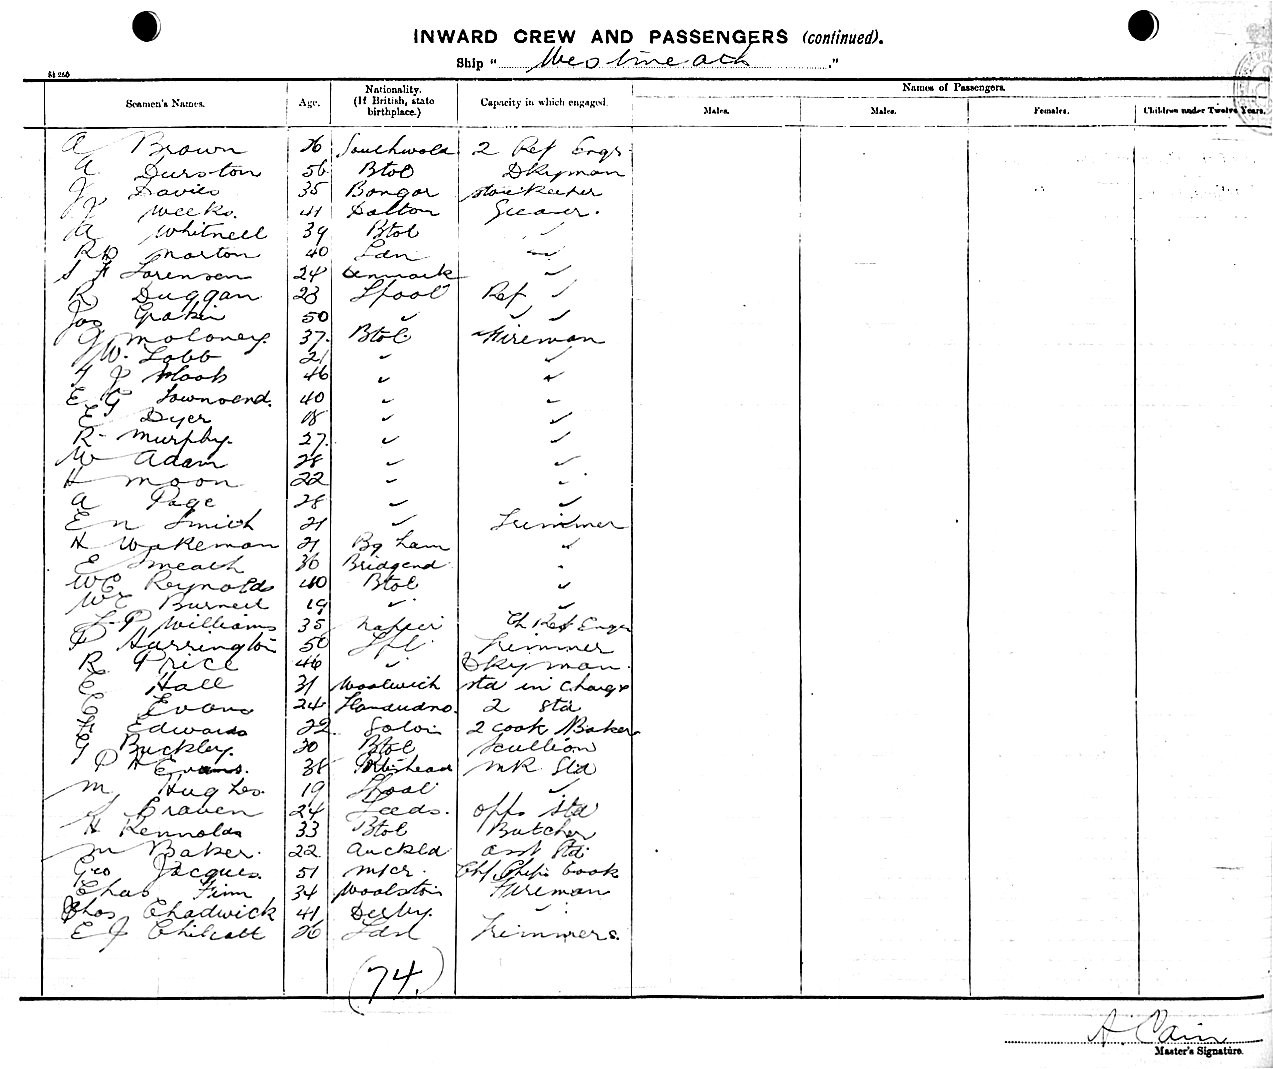 INWARD CREW AND PASSENGERS (continued).
Ship "Westmeath."
Seamen's Names. Age. Nationality. (If British, state birthplace.) Capacity in which engaged. Names of Passengers.
Males. Males. Females. Children under Twelve Years.
A Brown 26 Southwold 2 Ref Engr
A Durston 56 Btol Dkyman
J Davies 35 Bangor storekeeper
J Weeks. 41 Dalton Greaser.
A Whitnell 39 Btol ✓
R D Morton 40 Ldn ✓
S F Sorensen 24 Denmark ✓
R Duggan 23 Lpool Ref ✓
Jas 50 ✓ ✓ ✓
J Moloney. 37. Btol Fireman
W. Lobb 21 ✓ ✓
J 46 ✓ ✓
E G Townsend. 40 ✓ ✓
E Dyer 18 ✓ ✓
R Murphy. 27. ✓ ✓
W Adam 28 ✓ ✓
H Moon 22 ✓ ✓
A Page 28 ✓ ✓
E N Smith 21 ✓ Trimmer
H Wakeman 21 Bg ham ✓
E Smeath 36 Bridgend ✓
WC Reynolds 40 Btol ✓
WE Burnell 19 ✓ ✓
L P Williams 35 Napier Ch Ref Engr
P Harrington 50 Lpl Trimmer
R Price 46 ✓ Dkyman.
E Hall 31 Woolwich std in charge
E Evans 24 Llandudno. 2 std
F Edwards 22 2 cook Baker
G Buckley. 30 Btol Scullion
P H Evans. 38 Portishead MR Std
M Hughes. 19 Lpool ✓
S Craven 24 Leeds. offs Std
H Rennolds 33 Btol Butcher
M Baker. 22 Auckld asst Std
Geo Jacques. 51 Mcr. Chf Ship's Cook
Chas Finn 34 Woolston Fireman
Chas Chadwick 41 Derby. ✓
E J Chilcott 26 Ldn Trimmers.
(74.)
A. Cain
Master's Signature.